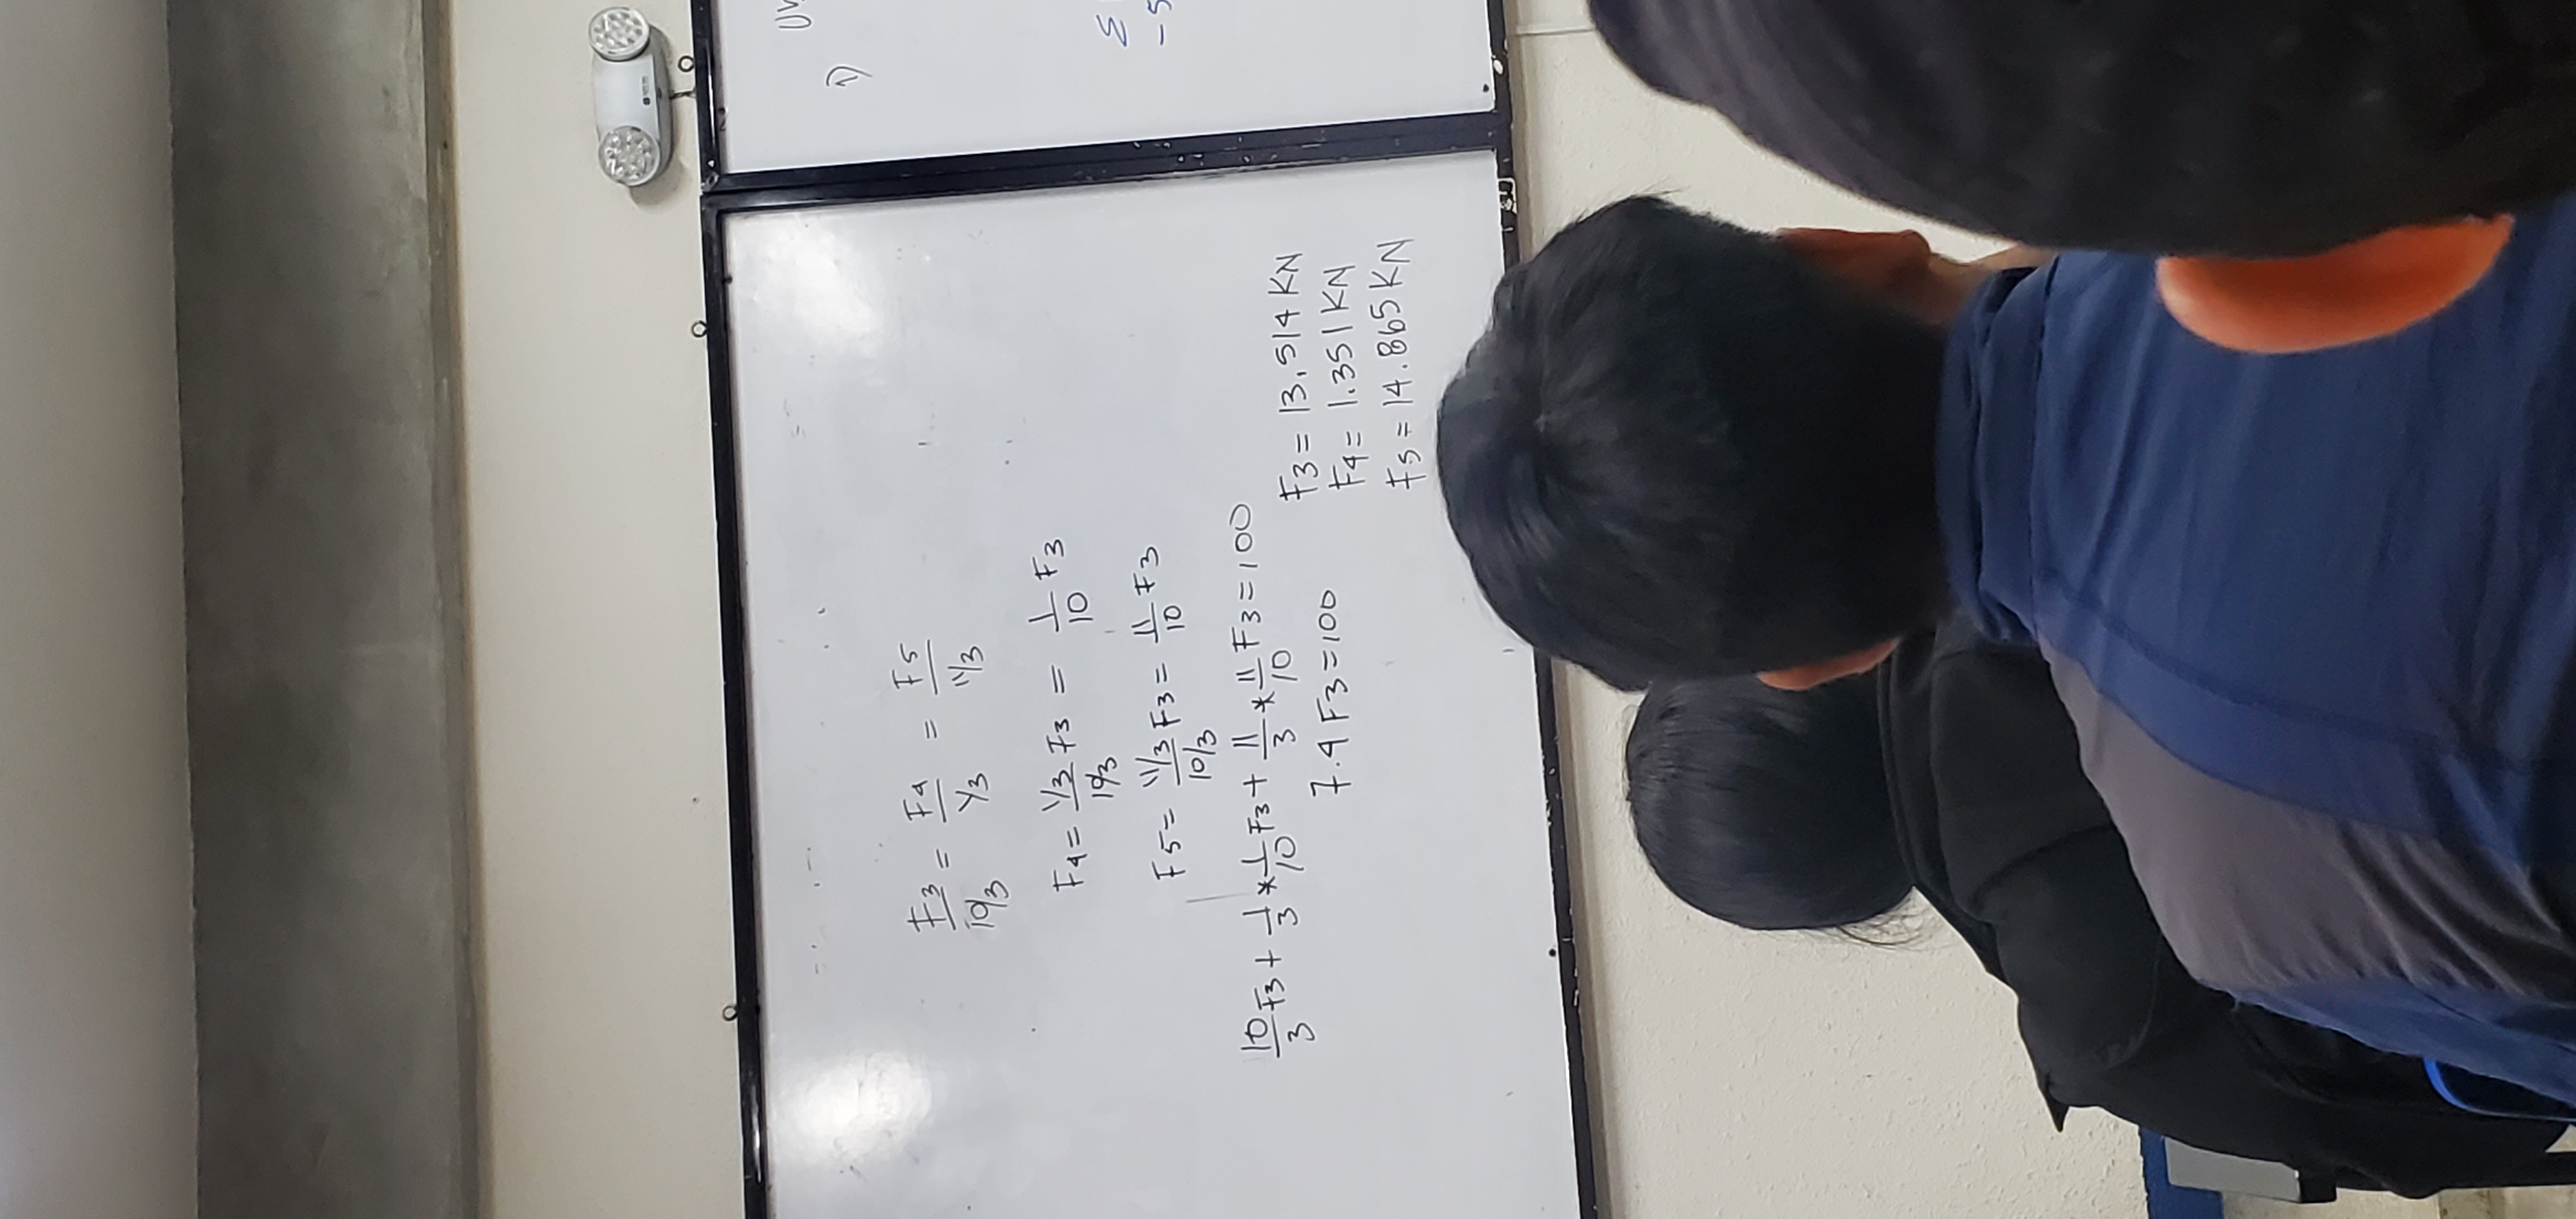 F3/10/3 = F4/1/3 = F5/11/3
F4 = 1/3/10/3 F3 = 1/10 F3
F5 = 11/3/10/3 F3 = 11/10 F3
10/3 F3 + 1/3 * 1/10 F3 + 11/3 * 11/10 F3 = 100
7.4 F3 = 100
F3 = 13,514 KN
F4 = 1.351 KN
F5 = 14.865 KN
1)
Σ
-5